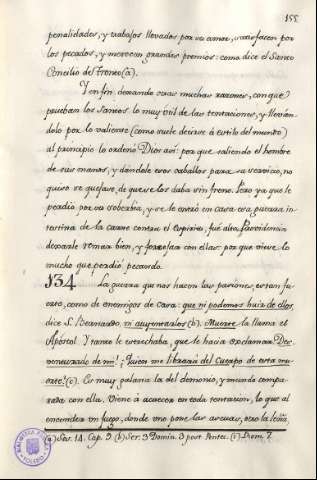 155
penalidades, y trabajos llevados por su amor, satisfacen por
los pecados, y merecen grandes premios: como dice el Santo
Concilio de Trento (a).
Y en fin, dexando otras muchas razones, con que
prueban los Santos lo muy util de las tentaciones, y llevan-
dolo por lo valiente (como suele decirse à estilo del mundo)
al principio lo ordenó Dios asi: por que saliendo el hombre
de sus manos, y dandole esos caballos para su servicio, no
quiso se quejase, de que se los daba sin freno. Pero ya que le
perdió por su soberbia, y se le entró en casa esta guerra in-
testina de la carne contra el espiritu, fué alta Providencia
dexarle reñir bien, y forcejar con ellas: por que viese lo
mucho que perdió pecando.
§34 La guerra que nos hacen las pasiones, es tan fu-
erte, como de enemigos de casa: que ni podemos huir de ellos,
dice S. Bernardo, ni ahuyentarlos (b). Muerte la llama el
Apostol. Y tanto le estrechaba, que le hacia exclamar: Des-
venturado de mi! ¿Quien me librará del Cuerpo de esta mu-
erte? (c). Es muy palania la del demonio, y mundo compa-
rada con ella. Viene à acaecer en toda tentacion, lo que al
encenderse un fuego, donde uno pone las ascuas, otro la leña,
(a) Ses. 14. Cap. 9. (b) Ser. 3. Domin. 3 post. Pentec. (c) Rom. 7.
BIBLIOTECA
TOLEDO